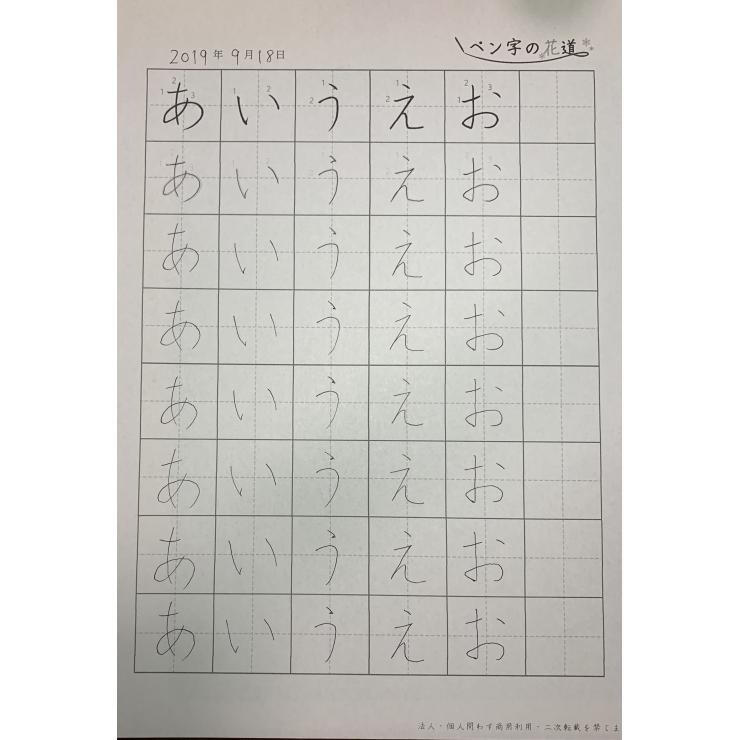 2019年 9月18日
ペン字の花道
あ い う え お
あ い う え お
あ い う え お
あ い う え お
あ い う え お
あ い う え お
あ い う え お
あ い う え お
法人・個人問わず商用利用・二次転載を禁じま